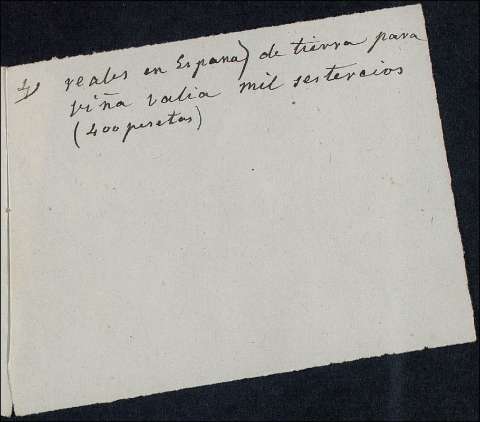 4) reales en España) de tierra para
viña valia mil sestercios
(400 pesetas)